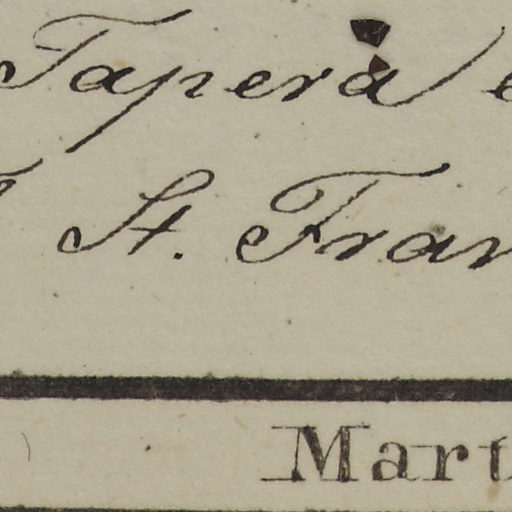 Tapera
St. Fran
Mart